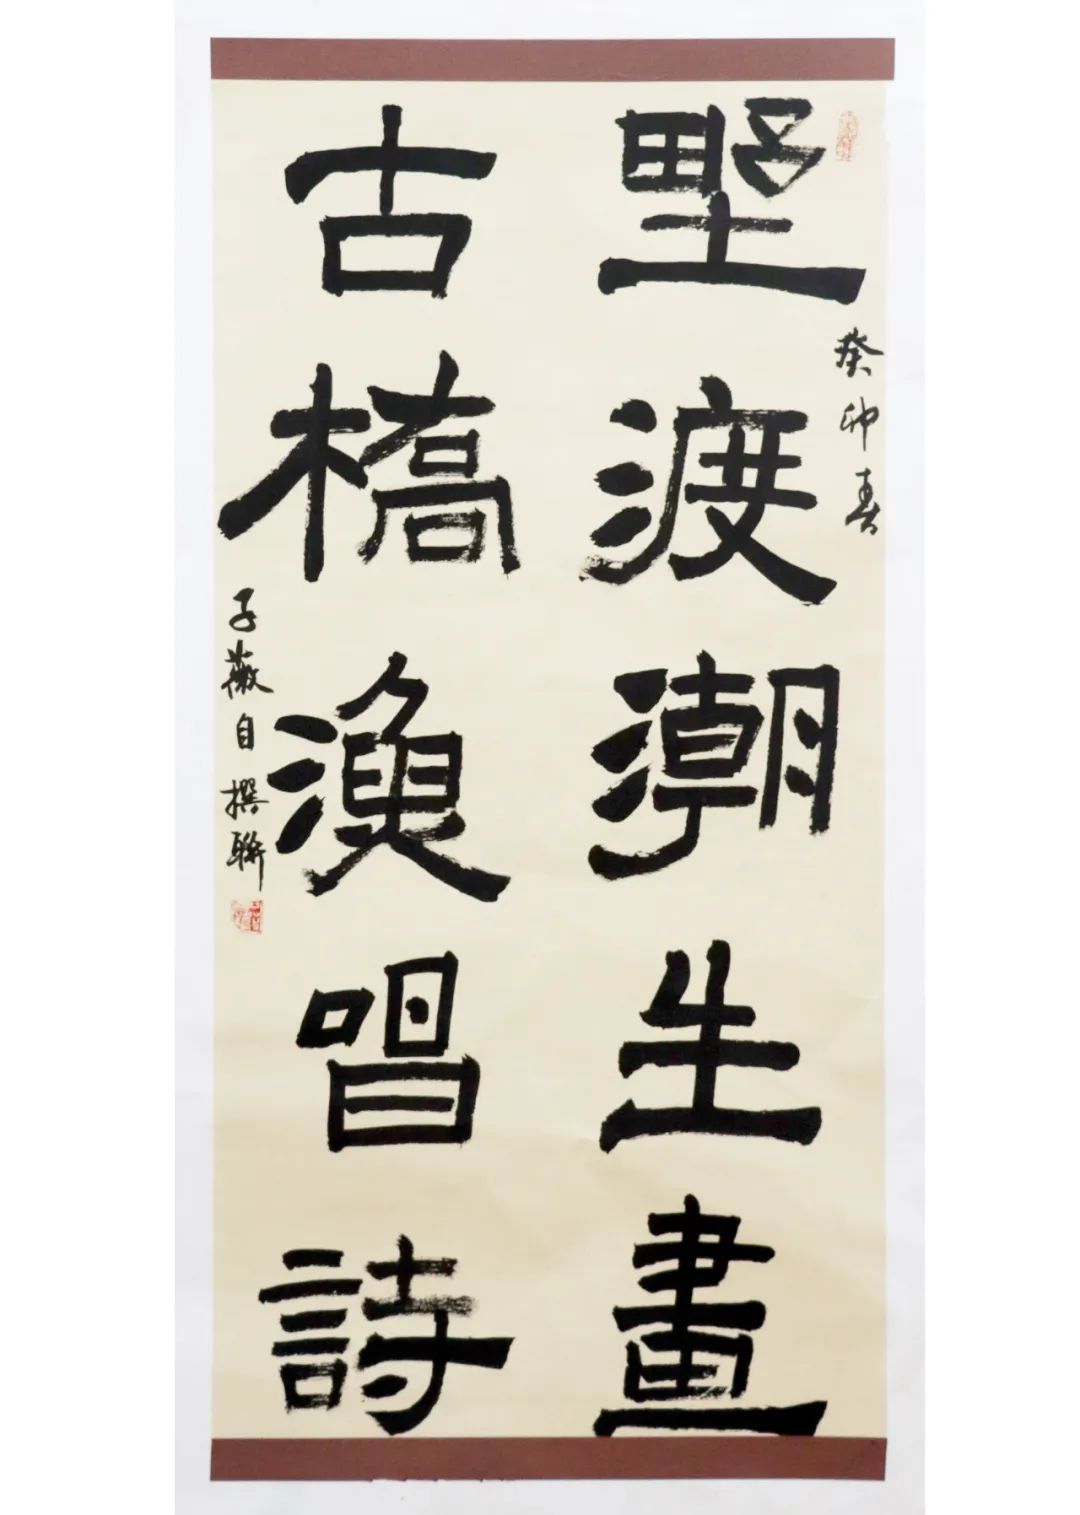 野渡潮生畫
癸卯春
古橋漁唱詩
子薇自撰聯